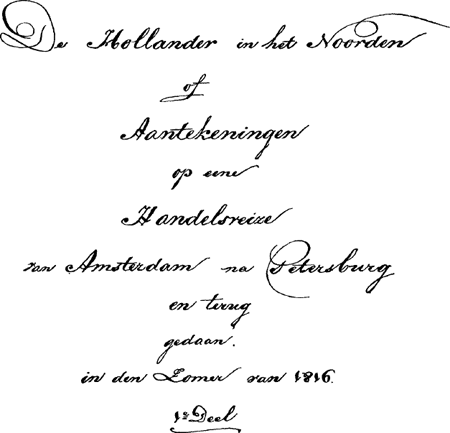 De Hollander in het Noorden
of
Aantekeningen
op eene
Handelsreize
van Amsterdam na Petersburg
en terug
gedaan.
in den Zomer van 1816.
1e Deel